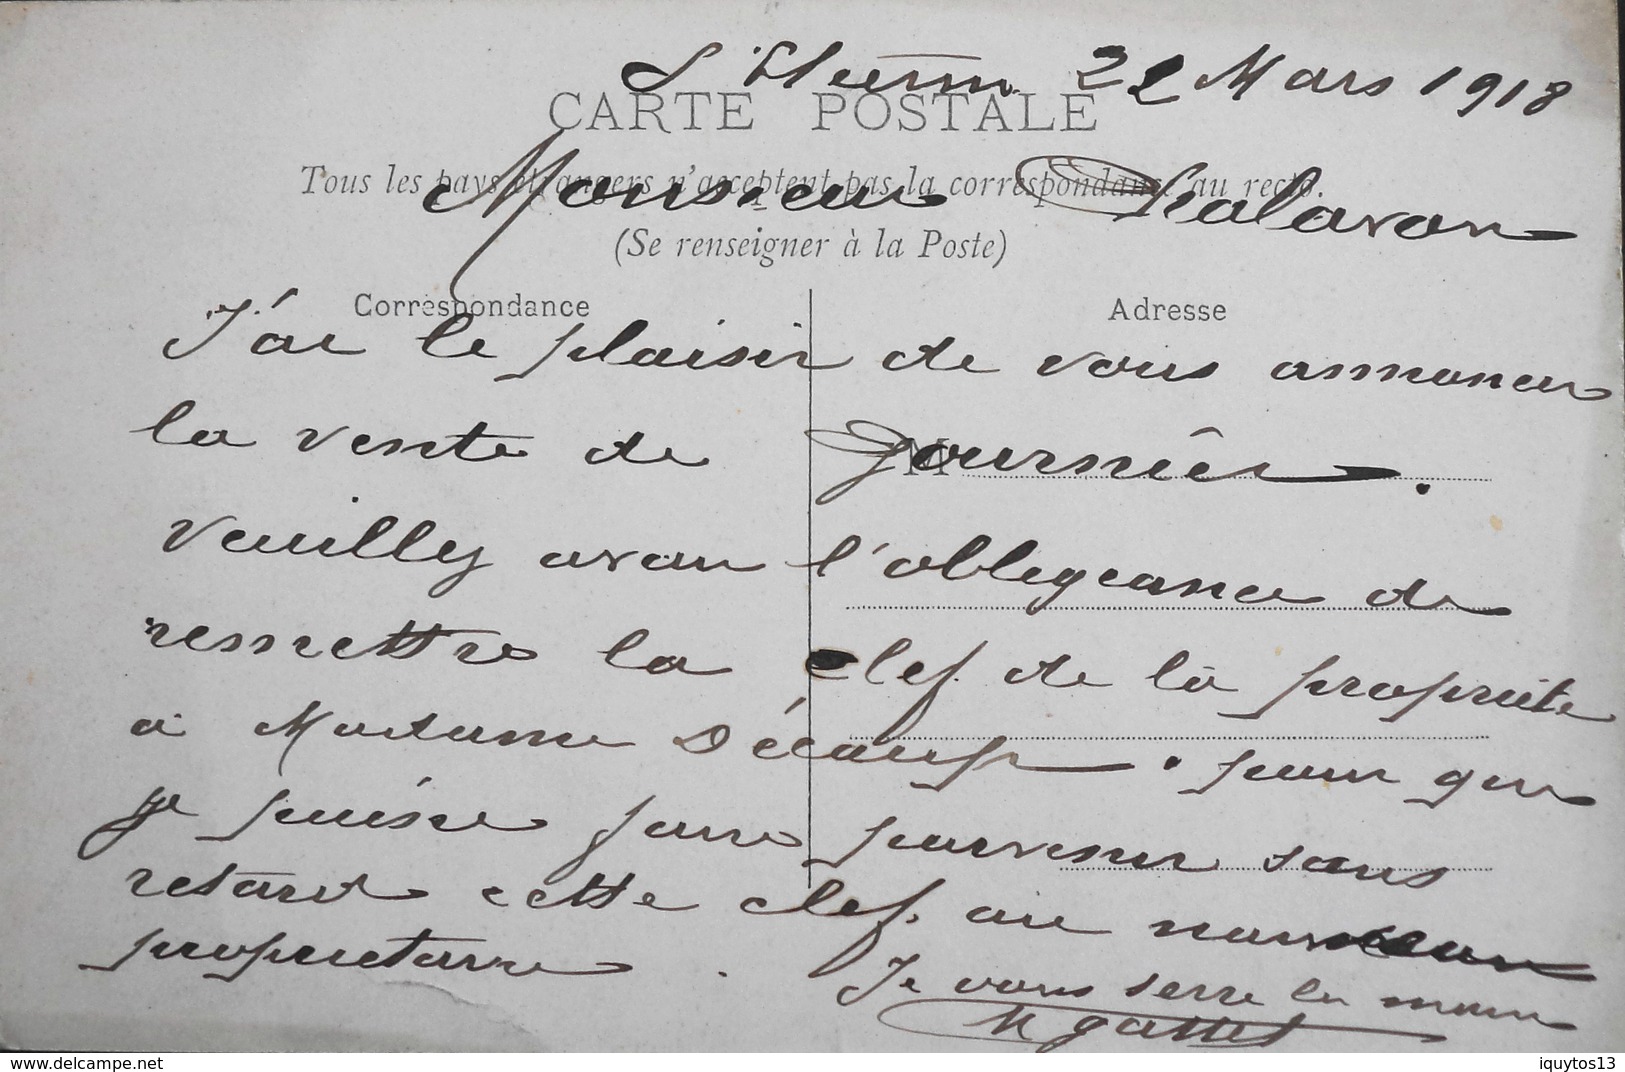 22 Mars 1918
CARTE POSTALE
Tous les pays étrangers n'acceptent pas la correspondance au recto.
Monsieur
(Se renseigner à la Poste)
Correspondance
Adresse
J'ai le plaisir de vous annoncer
la vente de
M
Veuilly avoir l'oblegeance de
remettre la clef de la propriete
a Madame Décamp. pour que
je puisse faire parvenir sans
retard cette clef au nouveau
propriétaire.
Je vous serre la main
delcampe.net
iquytos13